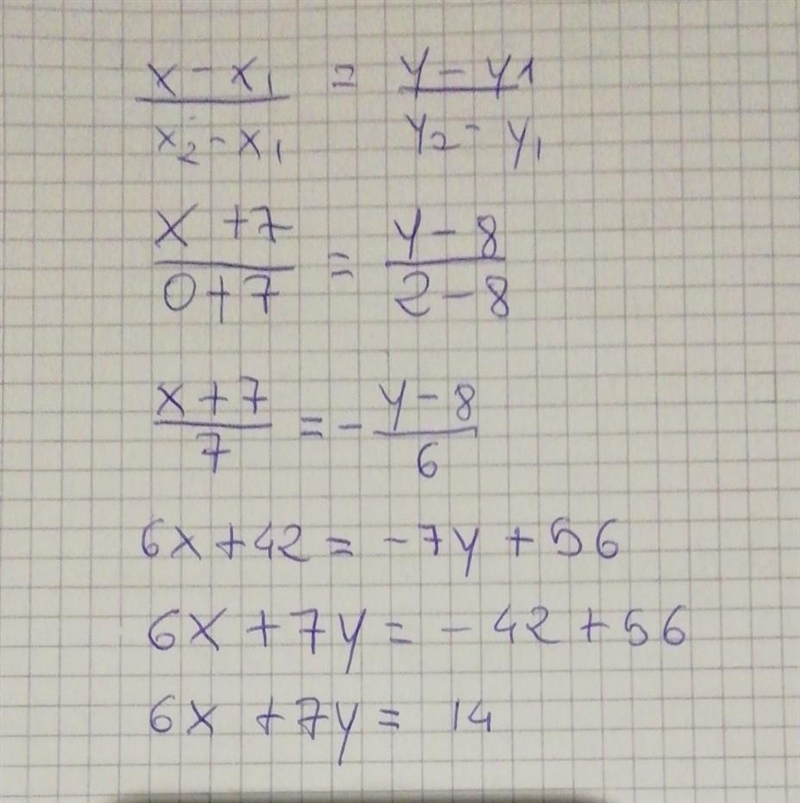 x - x₁ / x₂ - x₁ = y - y1 / y₂ - y₁
x + 7 / 0 + 7 = y - 8 / 2 - 8
x + 7 / 7 = - y - 8 / 6
6x + 42 = - 7y + 56
6x + 7y = - 42 + 56
6x + 7y = 14